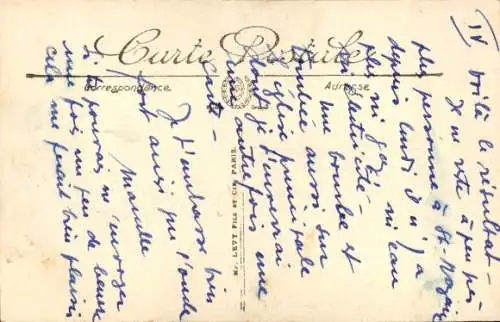 Carte Postale
Correspondance
Adresse
ND. LEVY FILS ET CIE, PARIS.
IV
voilà le résultat -
Il ne reste à peu près
plus personne à St-Nazaire
depuis lundi il n'y a
plus ni gaz - ni eau
ni électricité -
une bombe est
tombée aussi sur
l'église principale
dont je t'enverrai
une autre fois une
carte -
Je t'embrasse bien
fort ainsi que l'oncle
Mandée
si tu pouvais m'envoyer
une fois un peu de beurre
cela me ferait bien plaisir